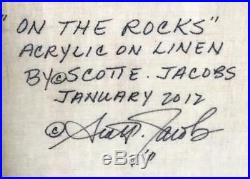 "ON THE ROCKS"
ACRYLIC ON LINEN
BY©SCOTT E. JACOBS
JANUARY 2012
© Scott Jacobs